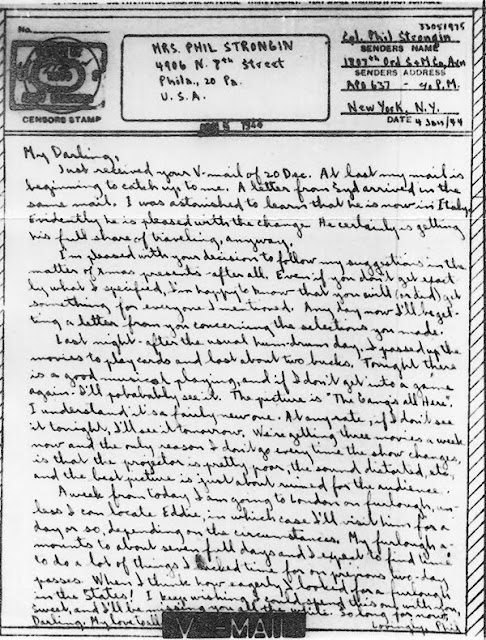 No.
CENSORS STAMP
MRS. PHIL STRONGIN
4906 N. 8th Street
Phila, 20 Pa.
U.S.A.
33051975
Cpl. Phil Strongin
SENDERS NAME
1807th Ord S+M Co, Avn
SENDERS ADDRESS
APO 637 - % P.M.
New York, N.Y.
DATE 4 Jan/44
My Darling,
Just received your V-mail of 20 Dec. At last my mail is
beginning to catch up to me. A letter from Syd arrived in the
same mail. I was astonished to learn that he is now in Italy.
Evidently he is pleased with the change. He certainly is getting
his full share of traveling, anyway.
I'm pleased with your decision to follow my suggestions in the
matter of Xmas presents after all. Even if you don't get exact
ly what I specified, I'm happy to know that you will (or did) get
something for everyone I mentioned. Any day now I'll be get
ting a letter from you concerning the selections you made.
Last night - after the usual humdrum day - I passed up the
movies to play cards and lost about two bucks. Tonight there
is a good musical playing, and if I don't get into a game
again I'll probably see it. The picture is "The Gang's all Here".
I understand it's a fairly new one. At any rate, if I don't see
it tonight, I'll see it tomorrow. We're getting three movies a week
now and the only reason I don't go every time the show changes,
is that the projector is pretty poor, the sound distorted, etc,
and the best picture is just about ruined for the audience.
A week from today I am going to London on furlough, un-
less I can locate Eddie, in which case I'll visit him for a
day or so, depending on the circumstances. My furlough a-
mounts to about seven full days and I expect to find time
to do a lot of things I lacked time for on previous two-day
passes. When I think how eagerly I looked for a furlough
in the States! I keep wishing I could spend this one with you,
Sweet, and I'll be missing you all the while. So long for now,
Darling. My love to all
Lovingly, Phil
V - MAIL